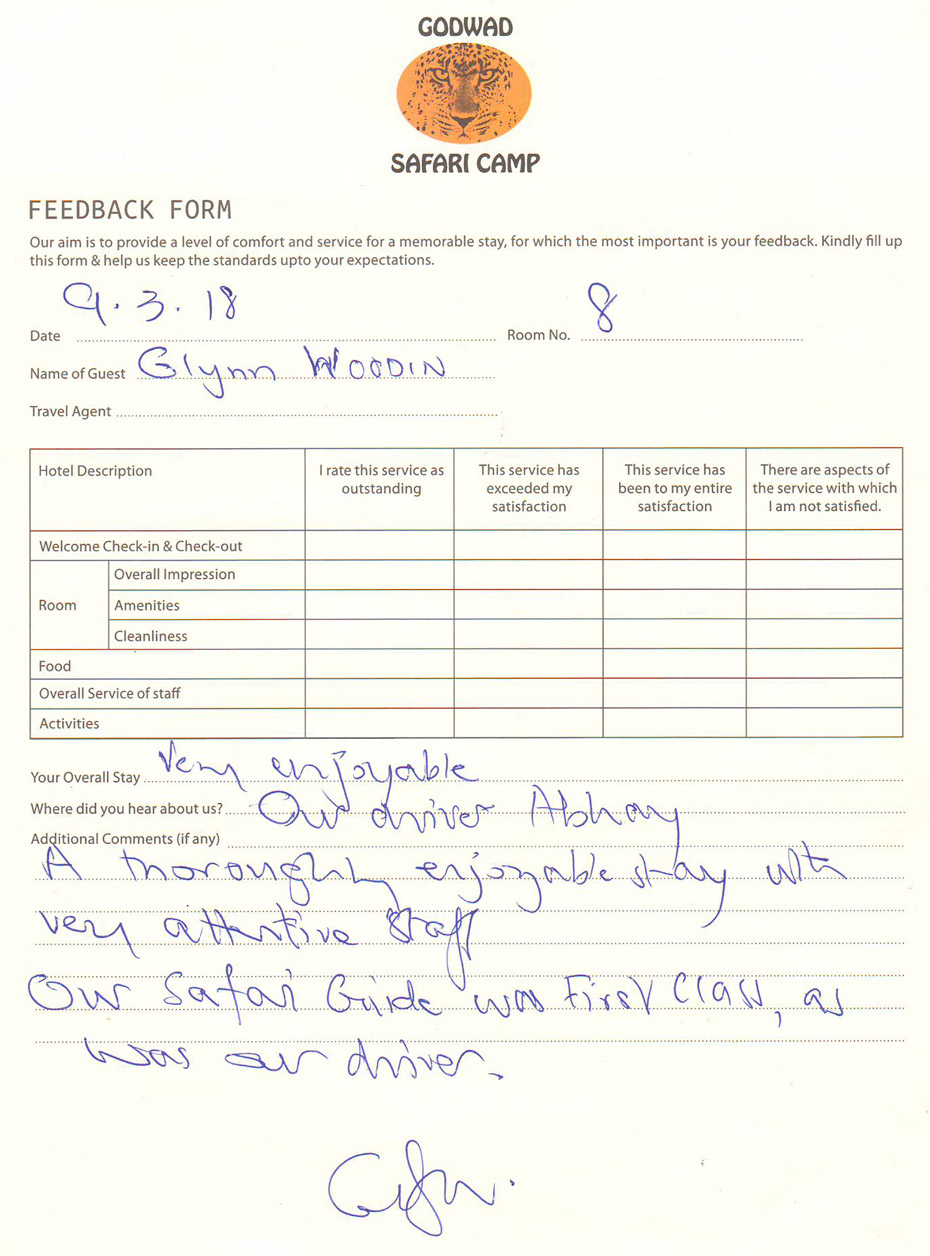 GODWAD
SAFARI CAMP
FEEDBACK FORM
Our aim is to provide a level of comfort and service for a memorable stay, for which the most important is your feedback. Kindly fill up
this form & help us keep the standards upto your expectations.
Date 9.3.18 Room No. 8
Name of Guest Glynn WOODIN
Travel Agent
Hotel Description
I rate this service as
outstanding
This service has
exceeded my
satisfaction
This service has
been to my entire
satisfaction
There are aspects of
the service with which
I am not satisfied.
Welcome Check-in & Check-out
Room
Overall Impression
Amenities
Cleanliness
Food
Overall Service of staff
Activities
Your Overall Stay Very enjoyable
Where did you hear about us? Our driver Abhay
Additional Comments (if any)
A thoroughly enjoyable stay with
very attentive staff
Our Safari Guide was First Class, as
was our driver.